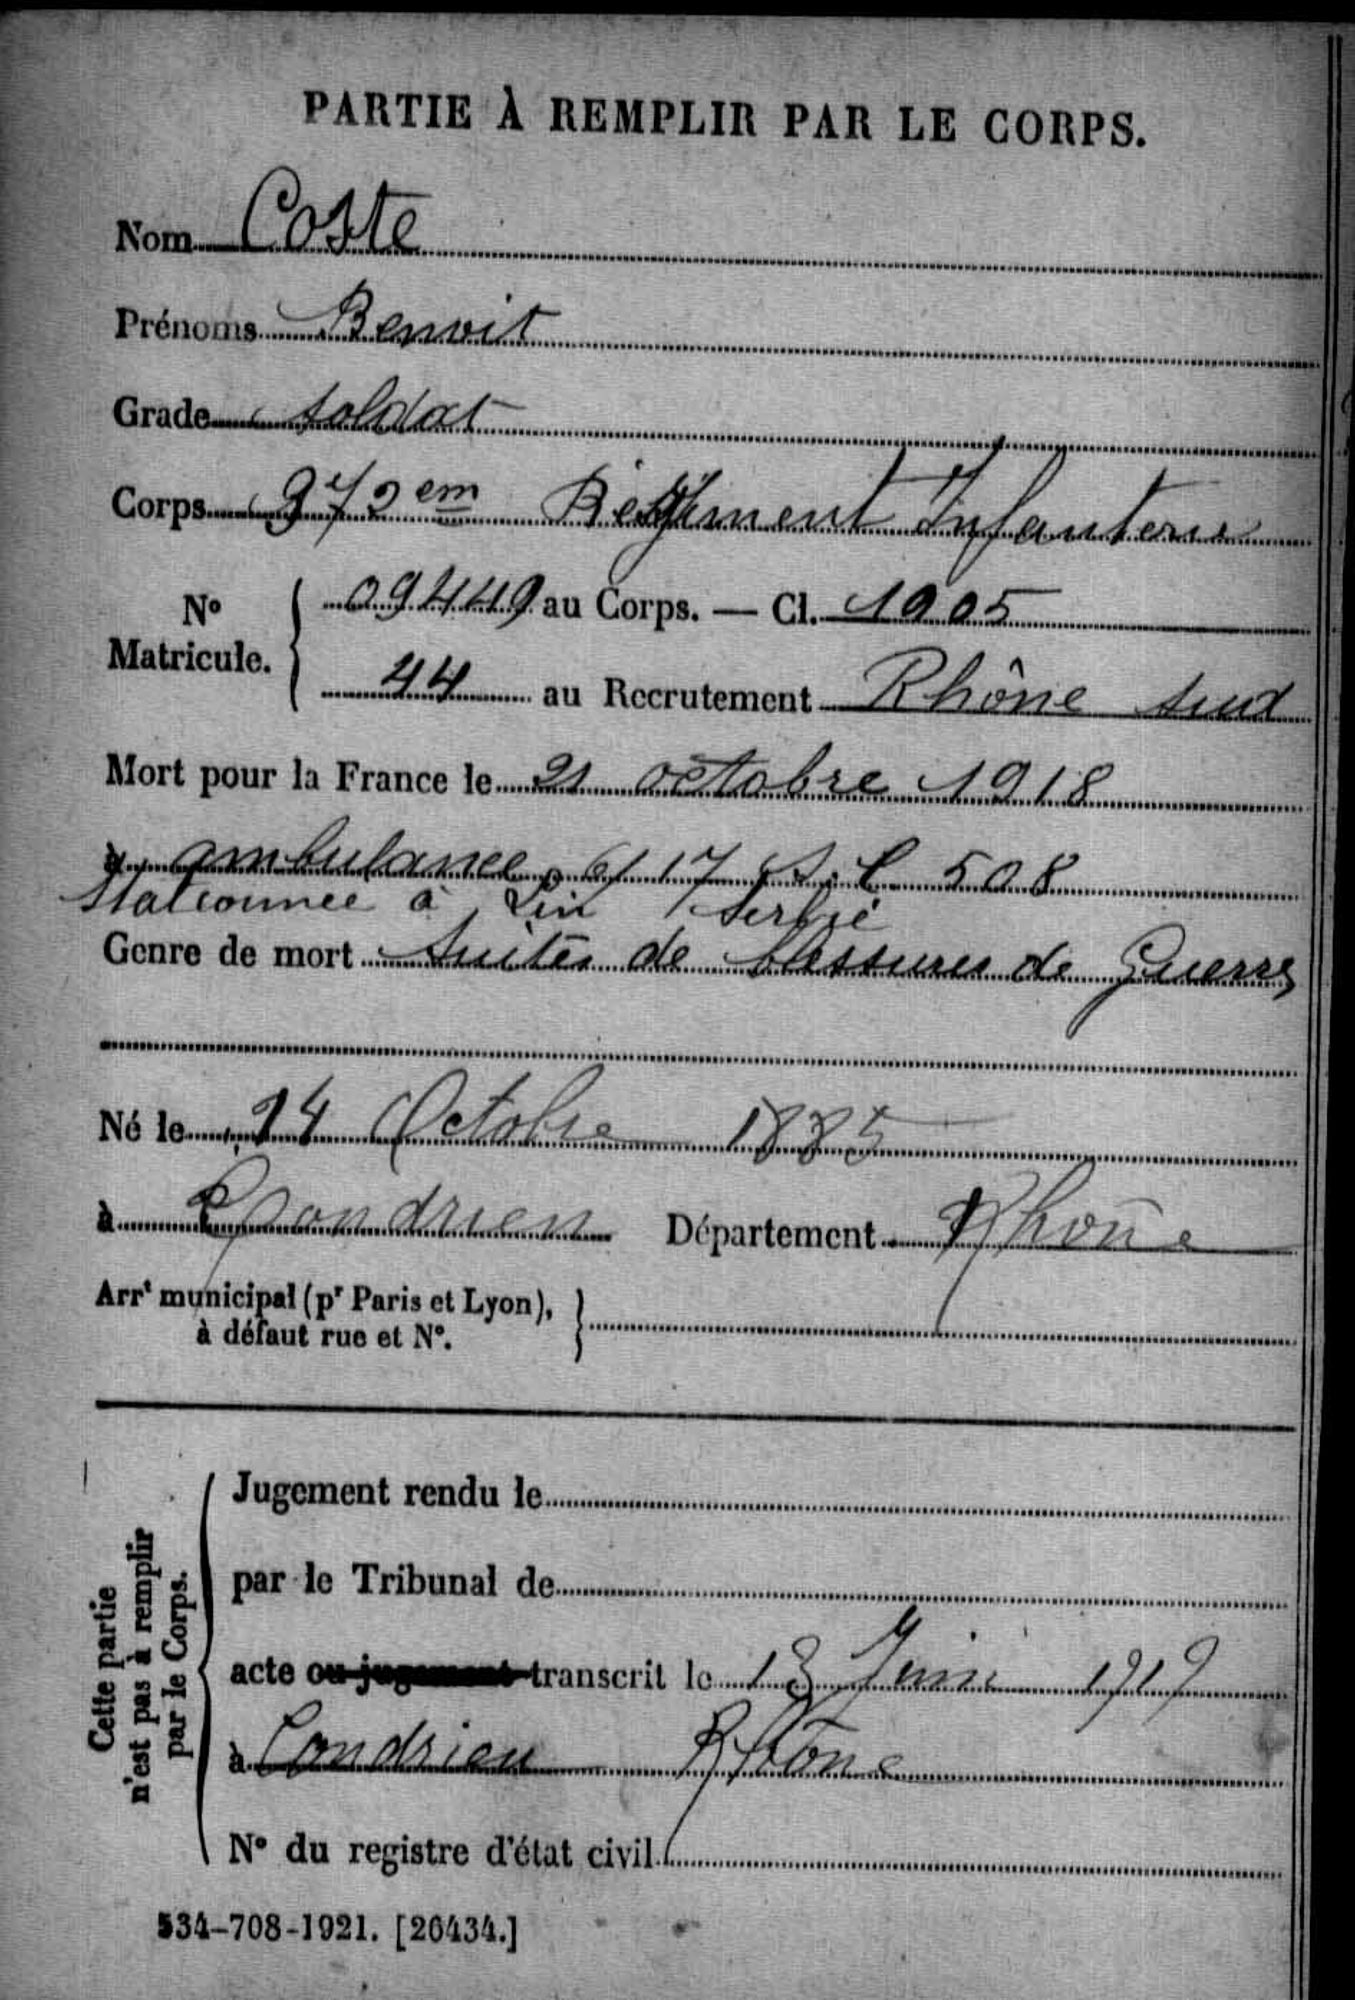 PARTIE À REMPLIR PAR LE CORPS.
Nom Coste
Prénoms Benoit
Grade soldat
Corps 372em Régiment Infanterie
No Matricule. 09449 au Corps. — Cl. 1905
44 au Recrutement Rhône sud
Mort pour la France le 21 octobre 1918
à ambulance 6/17 S.C 508
stationnée à Lin Serbie
Genre de mort suites de blessures de Guerre
Né le 24 Octobre 1885
à Condrieu Département Rhône
Arrt municipal (pr Paris et Lyon),
à défaut rue et N°.
Cette partie
n'est pas à remplir
par le Corps.
Jugement rendu le
par le Tribunal de
acte ou jugement transcrit le 13 Juin 1919
à Condrieu Rhône
N° du registre d'état civil
534-708-1921. [26434.]